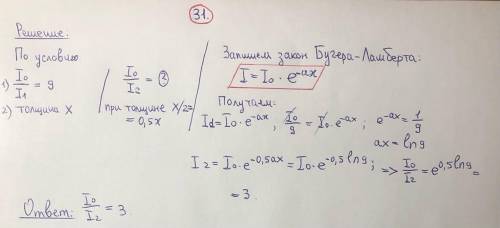 31.
Решение:
По условию
1) I₀/I₁ = 9
2) толщина X
I₀/I₂ = ?
при толщине X/2=
= 0,5x
Запишем закон Бугера-Ламберта:
I = I₀ · e^-ax
Получаем:
Id = I₀ · e^-ax ; I₀/9 = I₀ · e^-ax ; e^-ax = 1/9
ax = ln9
I₂ = I₀ · e^-0,5ax = I₀ · e^-0,5 ln9 ; => I₀/I₂ = e^0,5 ln9 =
= 3.
Ответ: I₀/I₂ = 3.